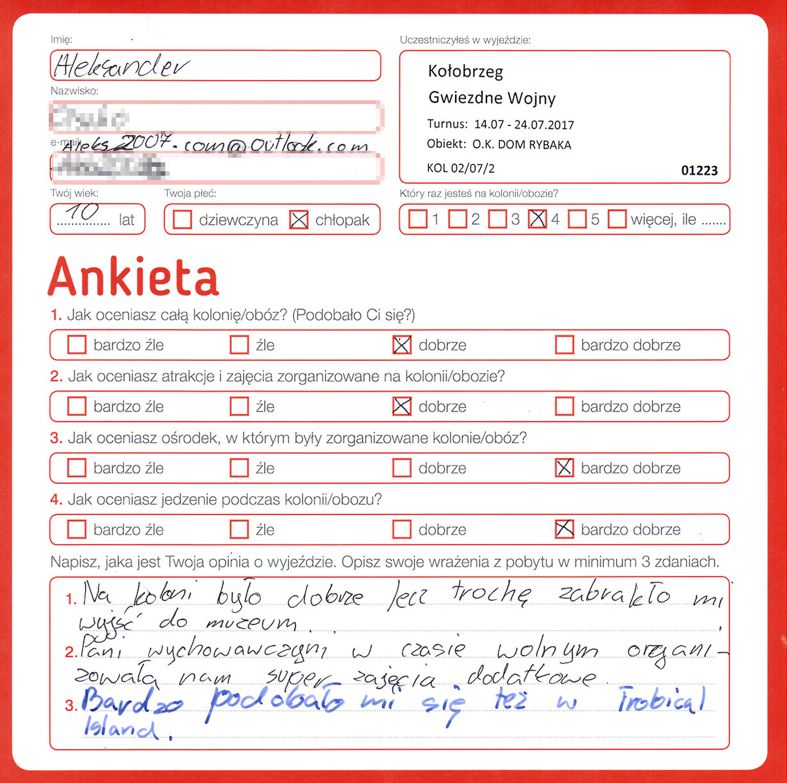 Imię:
Uczestniczyłeś w wyjeździe:
Aleksander
Kołobrzeg
Nazwisko:
Gwiezdne Wojny
Turnus: 14.07 - 24.07.2017
e-mail
Aleks2007.com@outlook.com
Obiekt: O.K. DOM RYBAKA
KOL 02/07/2 01223
Twój wiek: Twoja płeć: Który raz jesteś na kolonii/obozie?
10 lat dziewczyna chłopak 1 2 3 4 5 więcej, ile .......
Ankieta
1. Jak oceniasz całą kolonię/obóz? (Podobało Ci się?)
bardzo źle źle dobrze bardzo dobrze
2. Jak oceniasz atrakcje i zajęcia zorganizowane na kolonii/obozie?
bardzo źle źle dobrze bardzo dobrze
3. Jak oceniasz ośrodek, w którym były zorganizowane kolonie/obóz?
bardzo źle źle dobrze bardzo dobrze
4. Jak oceniasz jedzenie podczas kolonii/obozu?
bardzo źle źle dobrze bardzo dobrze
Napisz, jaka jest Twoja opinia o wyjeździe. Opisz swoje wrażenia z pobytu w minimum 3 zdaniach.
1. Na koloni było dobrze lecz trochę zabrakło mi
wyjść do muzeum.
2. Pani wychowawczyni w czasie wolnym organi-
zowała nam super zajęcia dodatkowe.
3. Bardzo podobało mi się też w Trobical
Island.